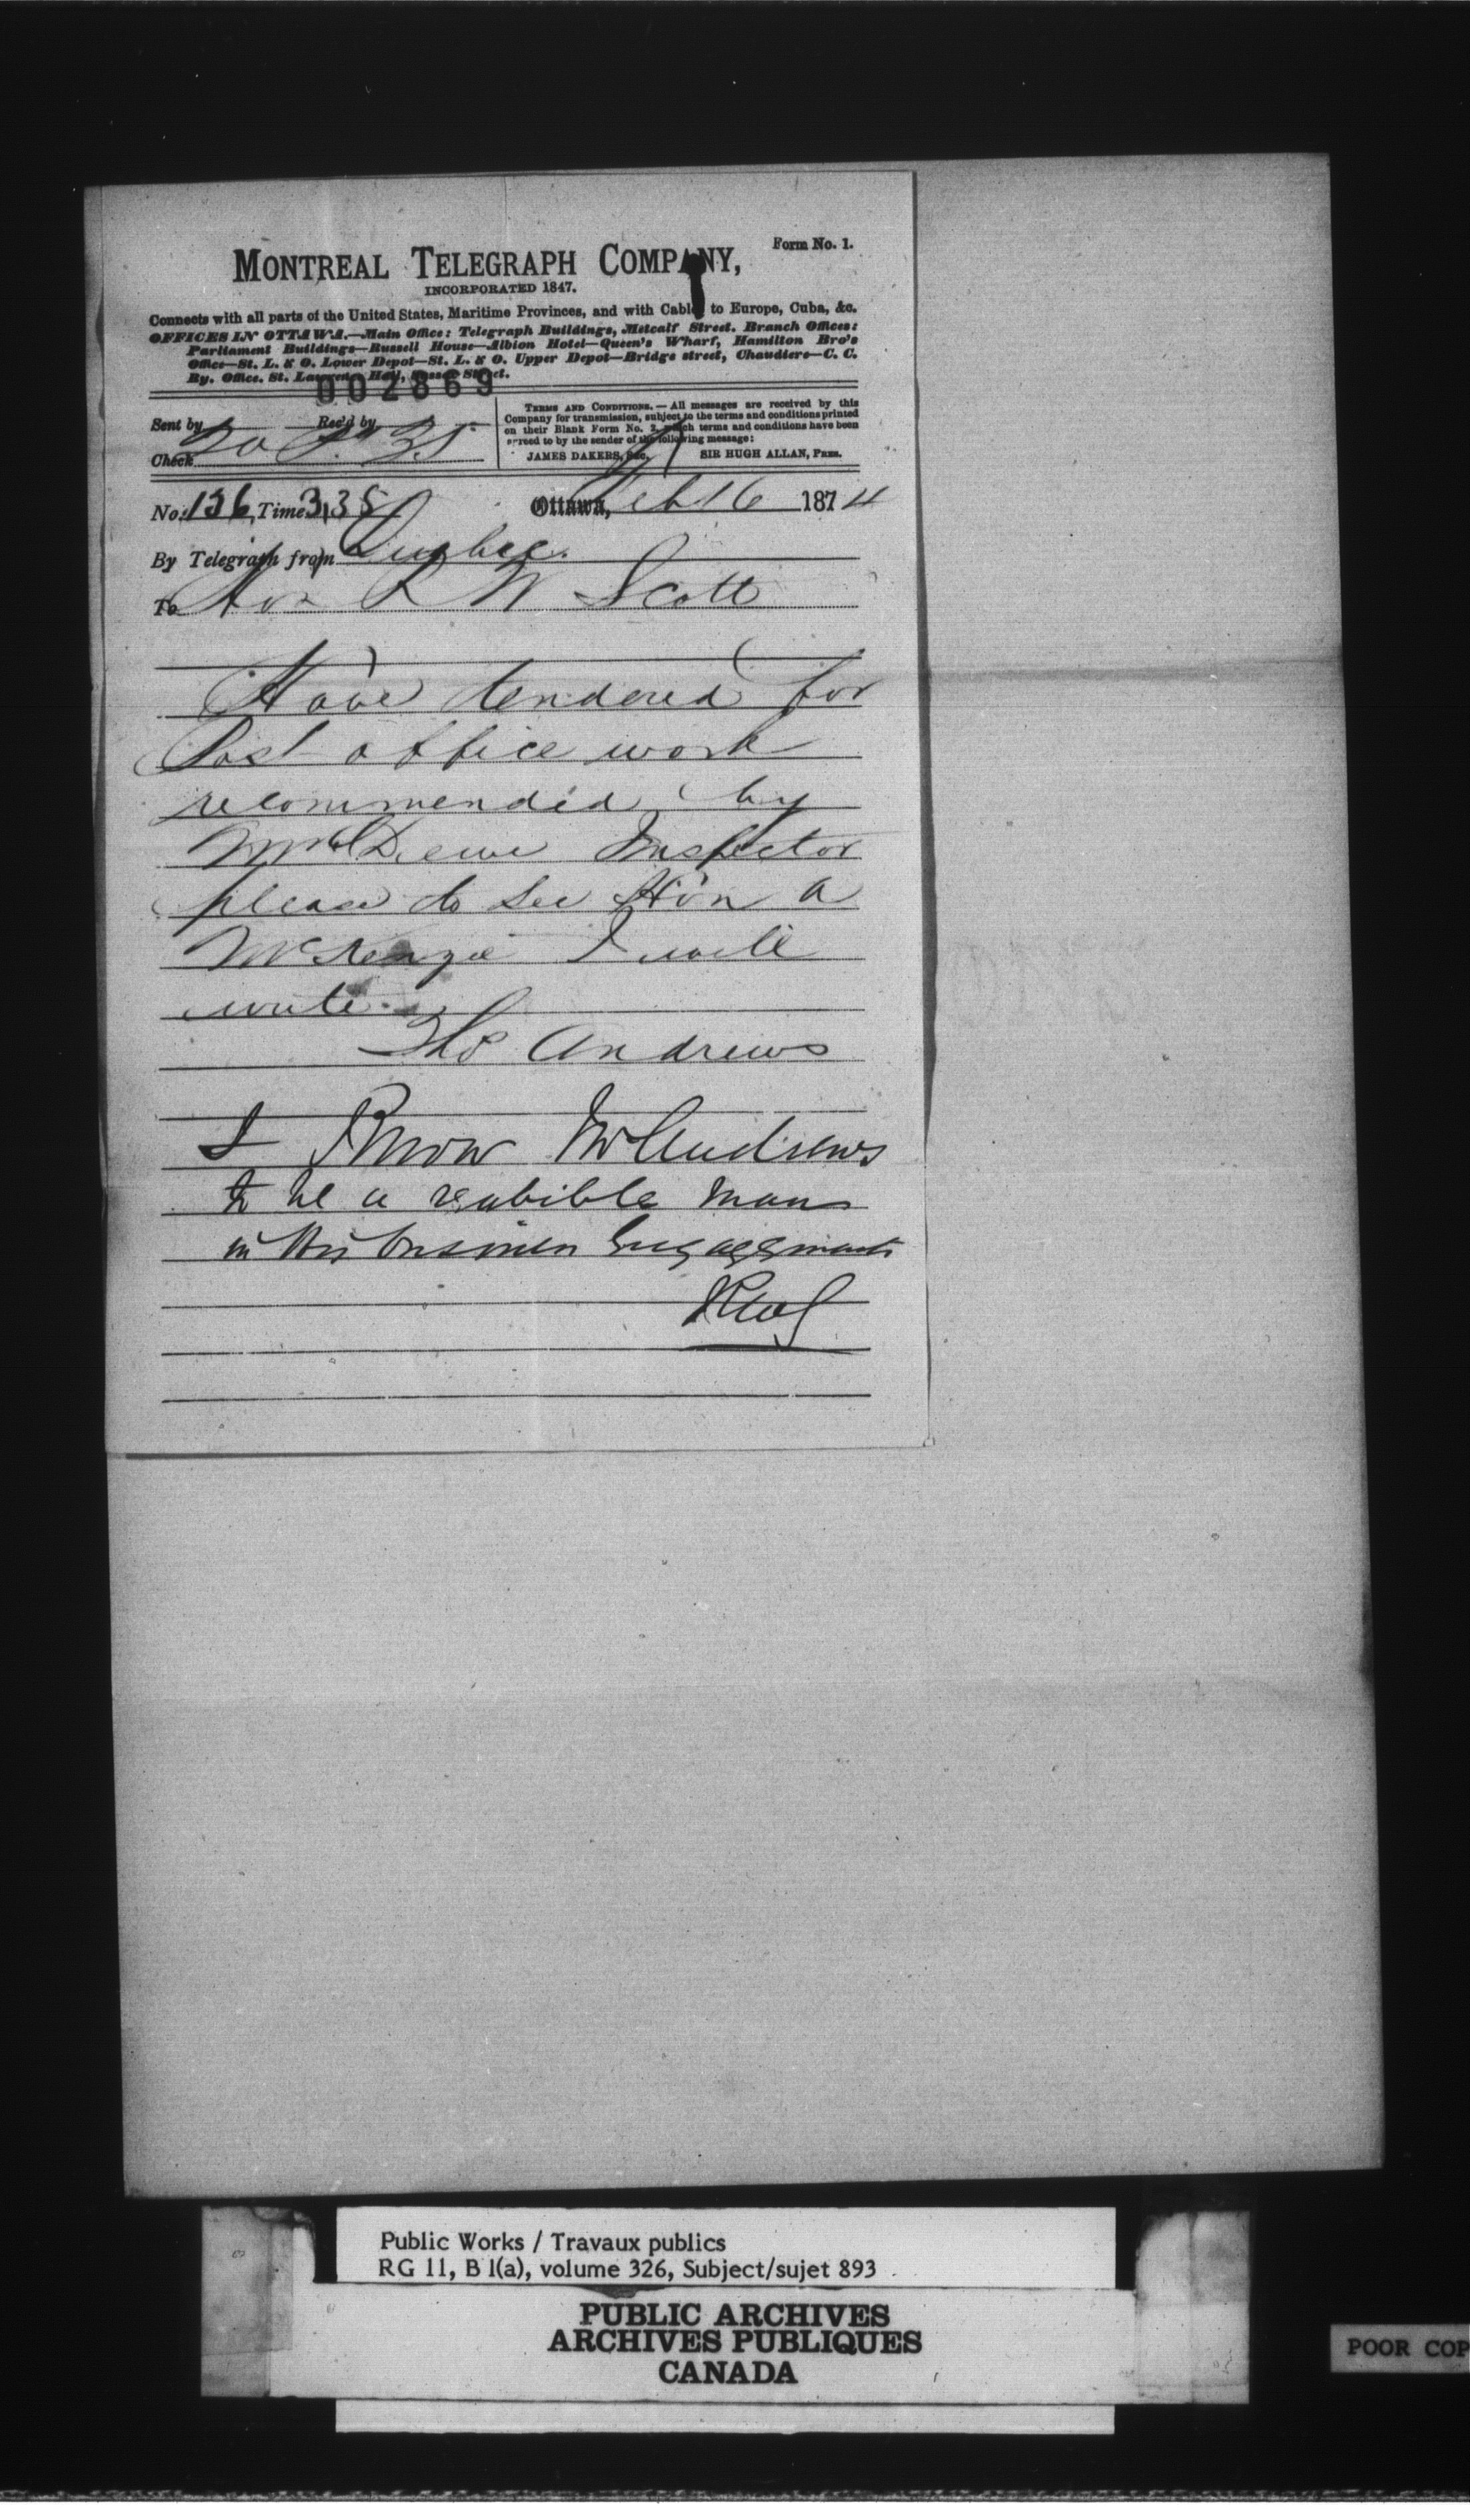 Form No. 1.
MONTREAL TELEGRAPH COMPANY,
INCORPORATED 1847.
Connects with all parts of the United States, Maritime Provinces, and with Cables to Europe, Cuba, &c.
OFFICES IN OTTAWA.—Main Office: Telegraph Buildings, Metcalf Street. Branch Offices:
Parliament Buildings—Russell House—Albion Hotel—Queen's Wharf, Hamilton Bro's
Office—St. L. & O. Lower Depot—St. L. & O. Upper Depot—Bridge street, Chaudiere—C. C.
By. Office. St. Lawrence Hall, Sussex Street.
002869
Sent by Rec'd by
Check 20 35
TERMS AND CONDITIONS.—All messages are received by this
Company for transmission, subject to the terms and conditions printed
on their Blank Form No. 2, which terms and conditions have been
agreed to by the sender of the following message:
JAMES DAKERS, Sec. SIR HUGH ALLAN, Pres.
No. 136, Time 3,35 Ottawa, Feb 16 1874
By Telegraph from Quebec.
To Hon R W Scott
Have tendered for
Post office work
recommended by
Dewe Inspector
please to see Hon A
McKenzie I will
write
Tho Andrews
I Know Mr Andrews
to be a reabible man
in his business Engagements
RWS
Public Works / Travaux publics
RG 11, B 1(a), volume 326, Subject/sujet 893
PUBLIC ARCHIVES
ARCHIVES PUBLIQUES
CANADA
POOR COP